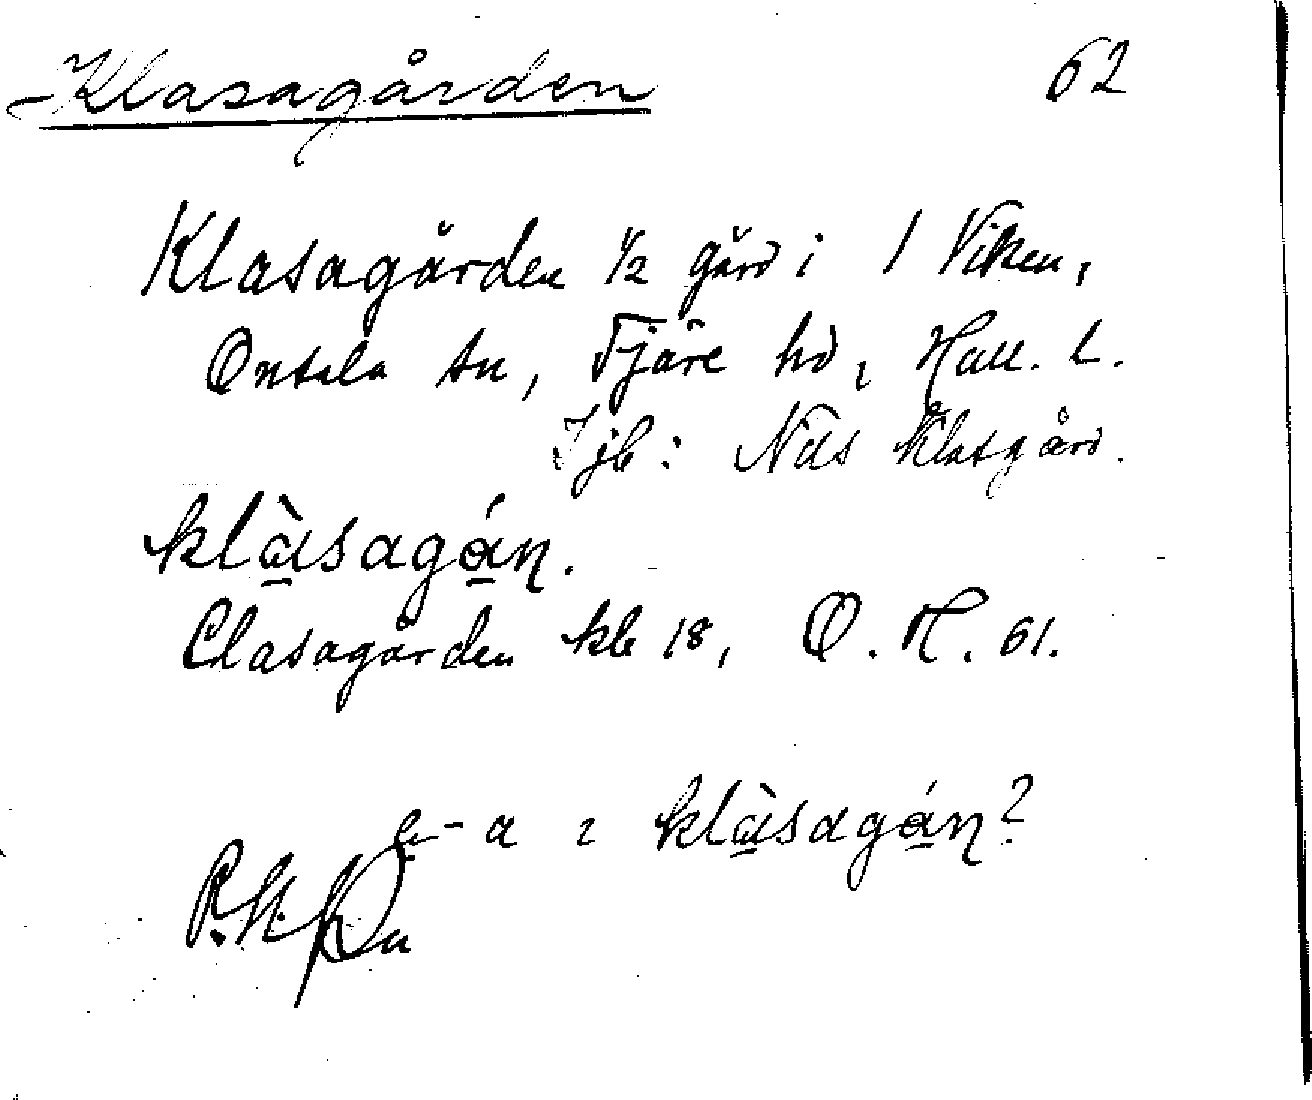 Klasagården 62
Klasagården 1/2 gård i 1 Viken,
Onsala sn, Fjäre hd, Hall. l.
Jjb: Näs Klasgård.
klàsagán.
Clasagården kb 18, O. N. 61.
a : klàsagán?